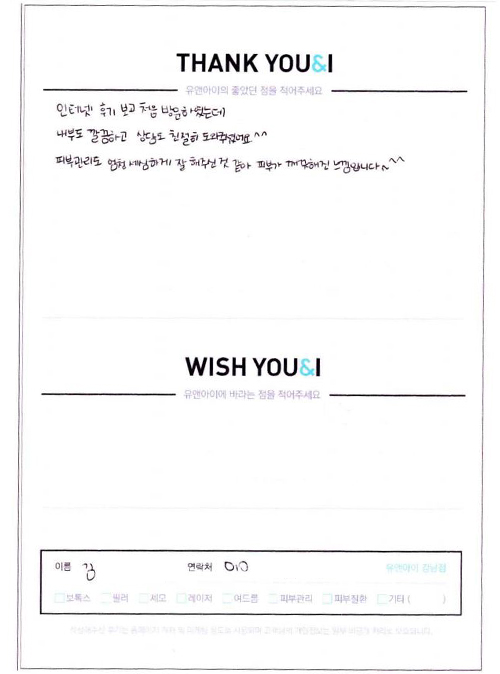 THANK YOU&I
유앤아이의 좋았던 점을 적어주세요
인터넷 후기 보고 처음 방문하였는데
내부도 깔끔하고 상담도 친절히 도와주셨어요^^
피부관리도 엄청 세심하게 잘 해주신 것 같아 피부가 깨끗해진 느낌입니다~^^
WISH YOU&I
유앤아이에 바라는 점을 적어주세요
이름 김 연락처 010 유앤아이 강남점
보톡스 필러 제모 레이저 여드름 피부관리 피부질환 기타 ( )